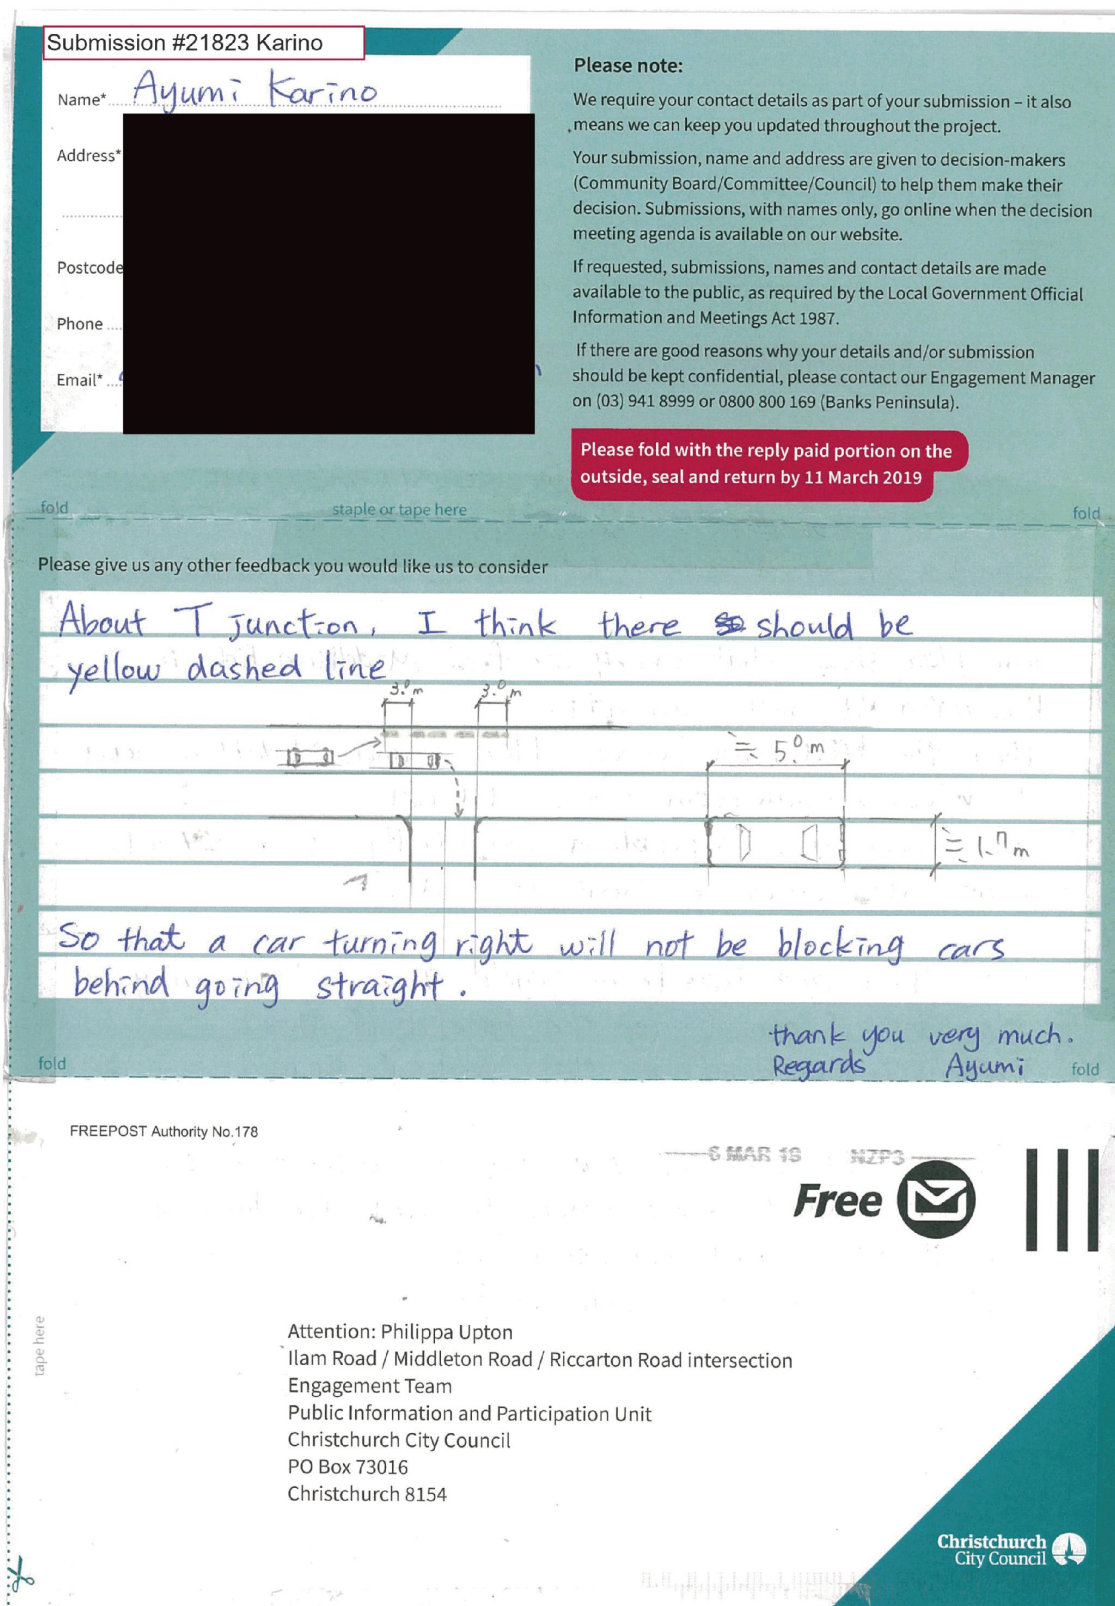 Submission #21823 Karino
Name* Ayumi Karino
Address*
Postcode
Phone
Email*
Please note:
We require your contact details as part of your submission – it also
means we can keep you updated throughout the project.
Your submission, name and address are given to decision-makers
(Community Board/Committee/Council) to help them make their
decision. Submissions, with names only, go online when the decision
meeting agenda is available on our website.
If requested, submissions, names and contact details are made
available to the public, as required by the Local Government Official
Information and Meetings Act 1987.
If there are good reasons why your details and/or submission
should be kept confidential, please contact our Engagement Manager
on (03) 941 8999 or 0800 800 169 (Banks Peninsula).
Please fold with the reply paid portion on the
outside, seal and return by 11 March 2019
fold staple or tape here fold
Please give us any other feedback you would like us to consider
About T junction, I think there should be
yellow dashed line
3.0 m 3.0 m
≒ 5.0 m
≒ 1.7 m
So that a car turning right will not be blocking cars
behind going straight.
thank you very much.
Regards Ayumi
fold fold
FREEPOST Authority No.178
6 MAR 19 NZP3
Free
tape here
Attention: Philippa Upton
Ilam Road / Middleton Road / Riccarton Road intersection
Engagement Team
Public Information and Participation Unit
Christchurch City Council
PO Box 73016
Christchurch 8154
Christchurch
City Council